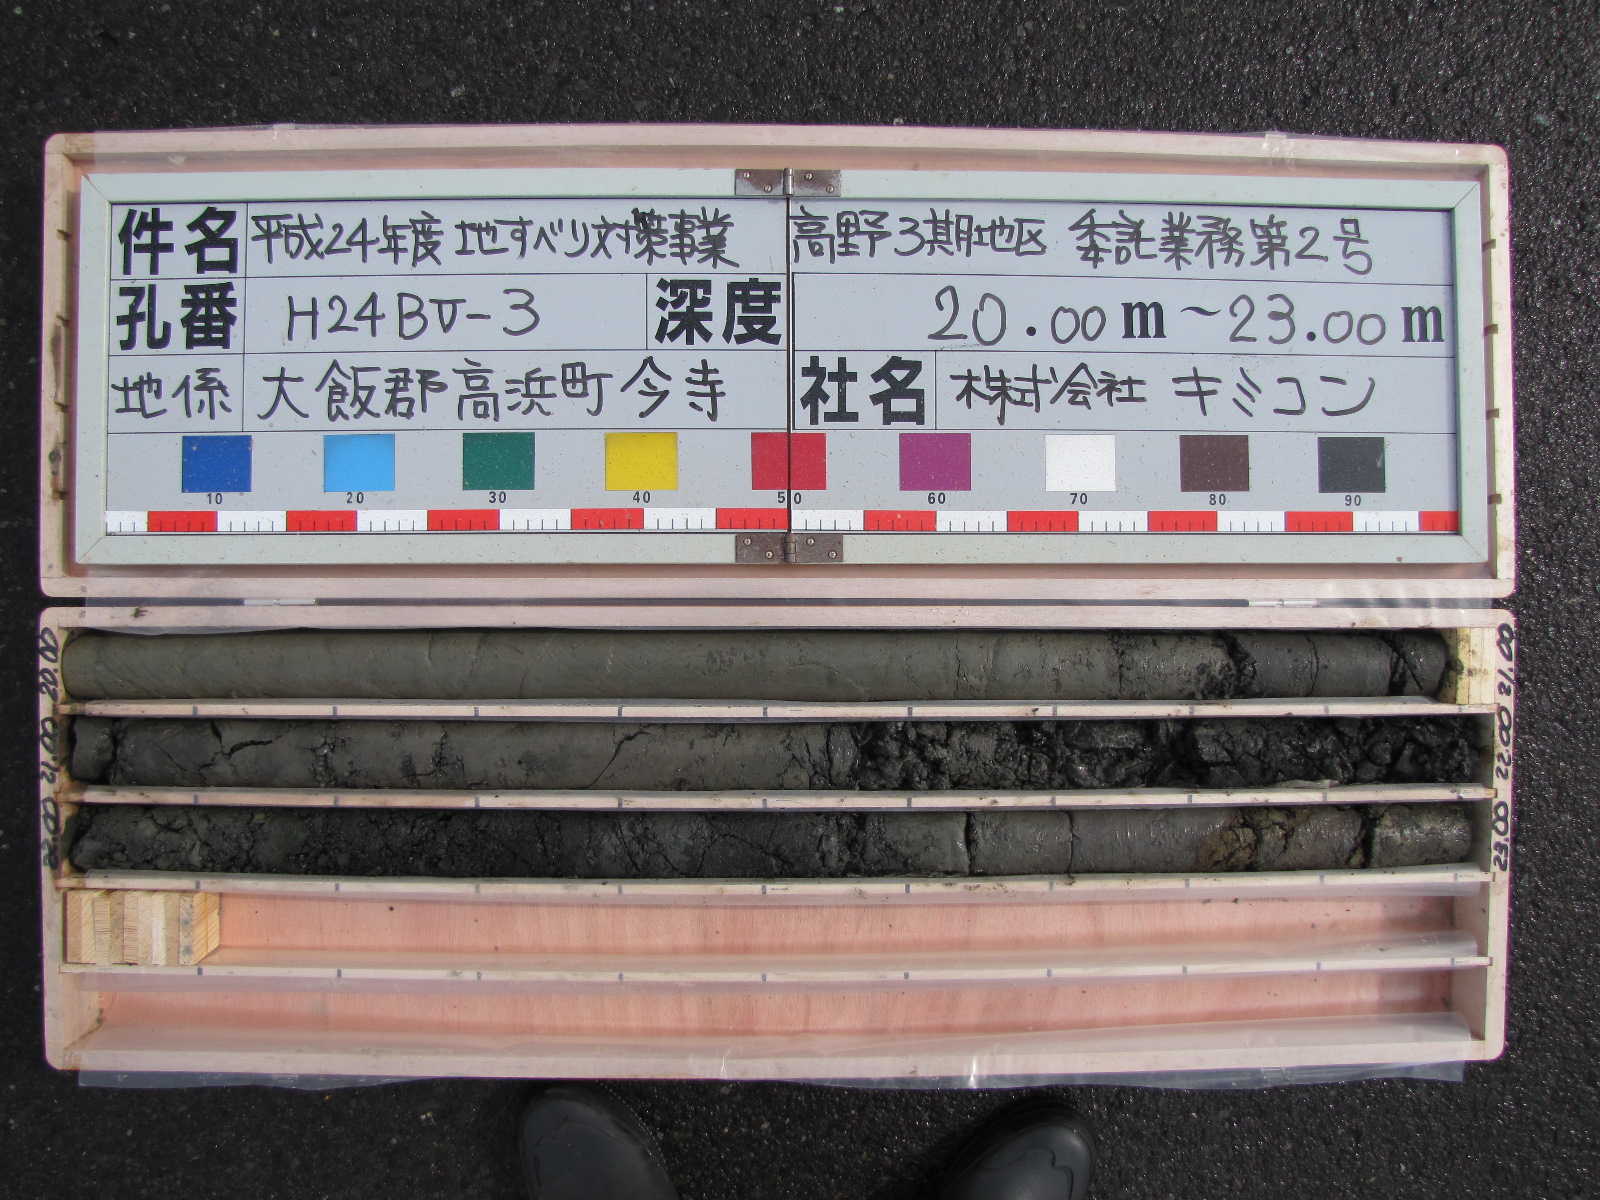 件名 平成24年度 地すべり対策事業 高野3期地区 委託業務第2号
孔番 H24BV-3 深度 20.00m～23.00m
地係 大飯郡高浜町今寺 社名 株式会社 キミコン
10 20 30 40 50 60 70 80 90
20.00 21.00
21.00 22.00
22.00 23.00